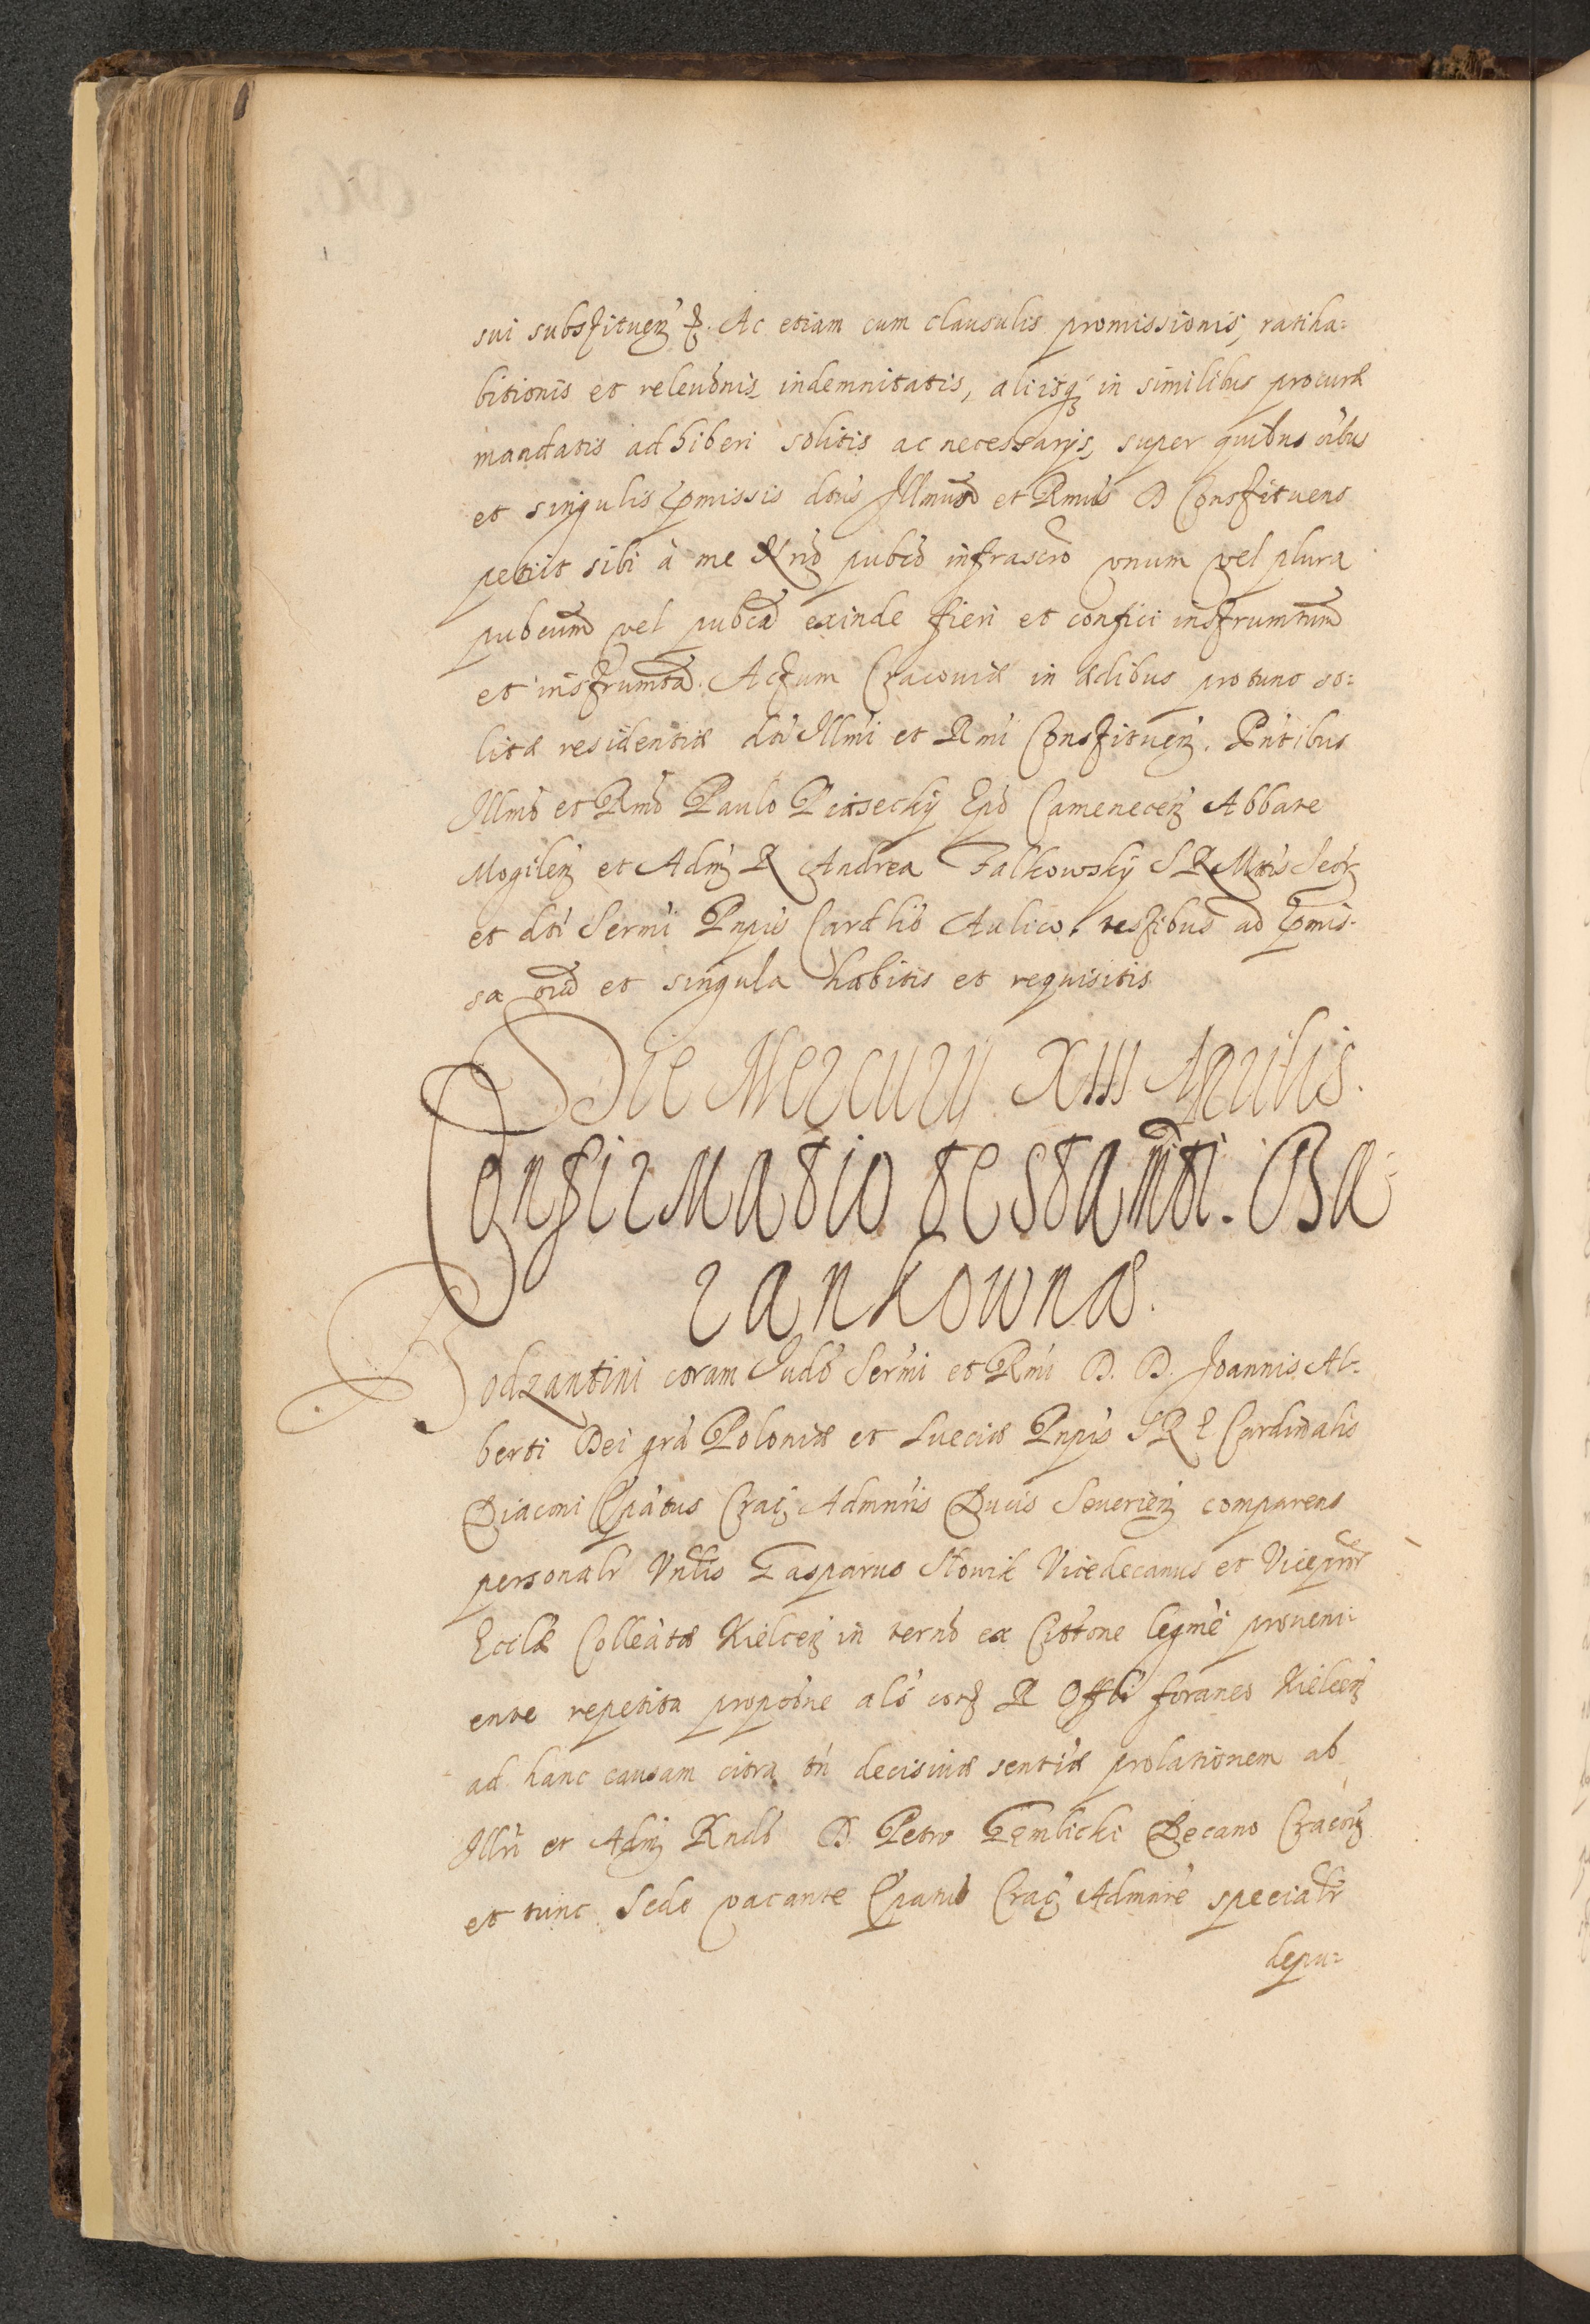 sui substituen̄ &. Ac etiam cum clausulis promissionis, ratiha=
bitionis et releuōnis indemnitatis, aliisq̃ in similibus procuræ
mandatis adhiberi solitis ac necessarijs, super quibus oībus
et singulis p̄missis dtūs Illmūs et Rmūs D Constituens
petiit sibi à me Nriō pubcō infrascrō vnum vel plura
pubcum̄ vel pubcā exinde fieri et confici instrumtūm
et instrumtā. Actum Cracouiæ in ædibus pro tunc so=
litæ residentiæ dti Illmī et Rmī Constituen̄. Pn̄tibus
Illmō et Rmō Paulo Piasecky Epō Camenecen̄ Abbate
Mogilen̄ et Adm̄ R Andrea Falkowsky S R Mtis Secr̄
et dti Sermī Pnpis Cardlis Aulico, testibus ad p̄mis=
sa oīa et singula habitis et requisitis
Die Mercurij XIII Aprilis.
Confirmatio testamti. Ba=
rankownæ.
Bodzantini coram Judō Sermī et Rmī D. D. Joannis Al=
berti Dei grā Poloniæ et Sueciæ Pnpis S R E Cardinalis
Diaconi Epātus Crac̄ Admnris Ducis Seuerien̄ comparens
personalr Vnblis Gasparus Słowik Vicedecanus et Viceprōr
Ecclæ Colleātæ Kielcen̄ in ternō ex Cittōne legmē proueni=
ente repetita propōne als cor̄ R Offli foraneo Kielcen̄
ad hanc causam citra tn̄ decisiuæ sentiæ prolationem ab
Illri et Adm̄ Rndō D. Petro Gembicki Decano Cracou̅
et tunc Sede vacante Epatus Crac̄ Admnre specialr
depu=